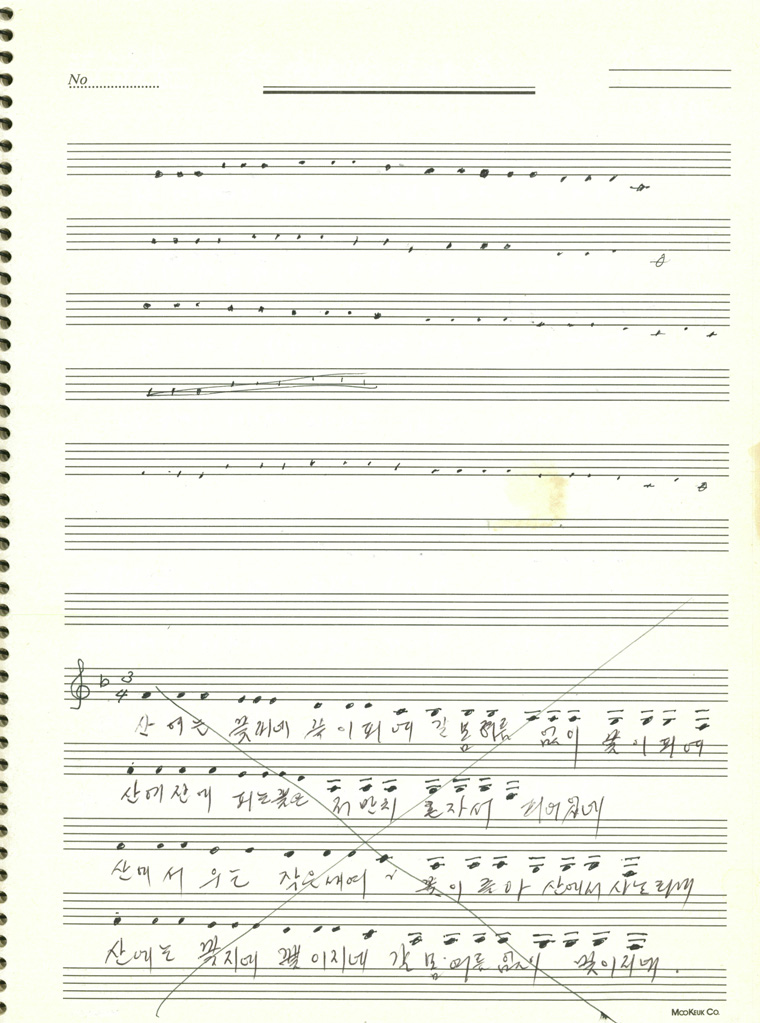 No
3
4
산 에는 꽃피네 꽃이피네 갈 봄 여름 없이 꽃이피네
산에산에 피는꽃은 저만치 혼자서 피어있네
산에서 우는 작은새여 꽃이좋아 산에서 사노라네
산에는 꽃지네 꽃이지네 갈 봄 여름 없이 꽃이지네.
MOOKEUK CO.